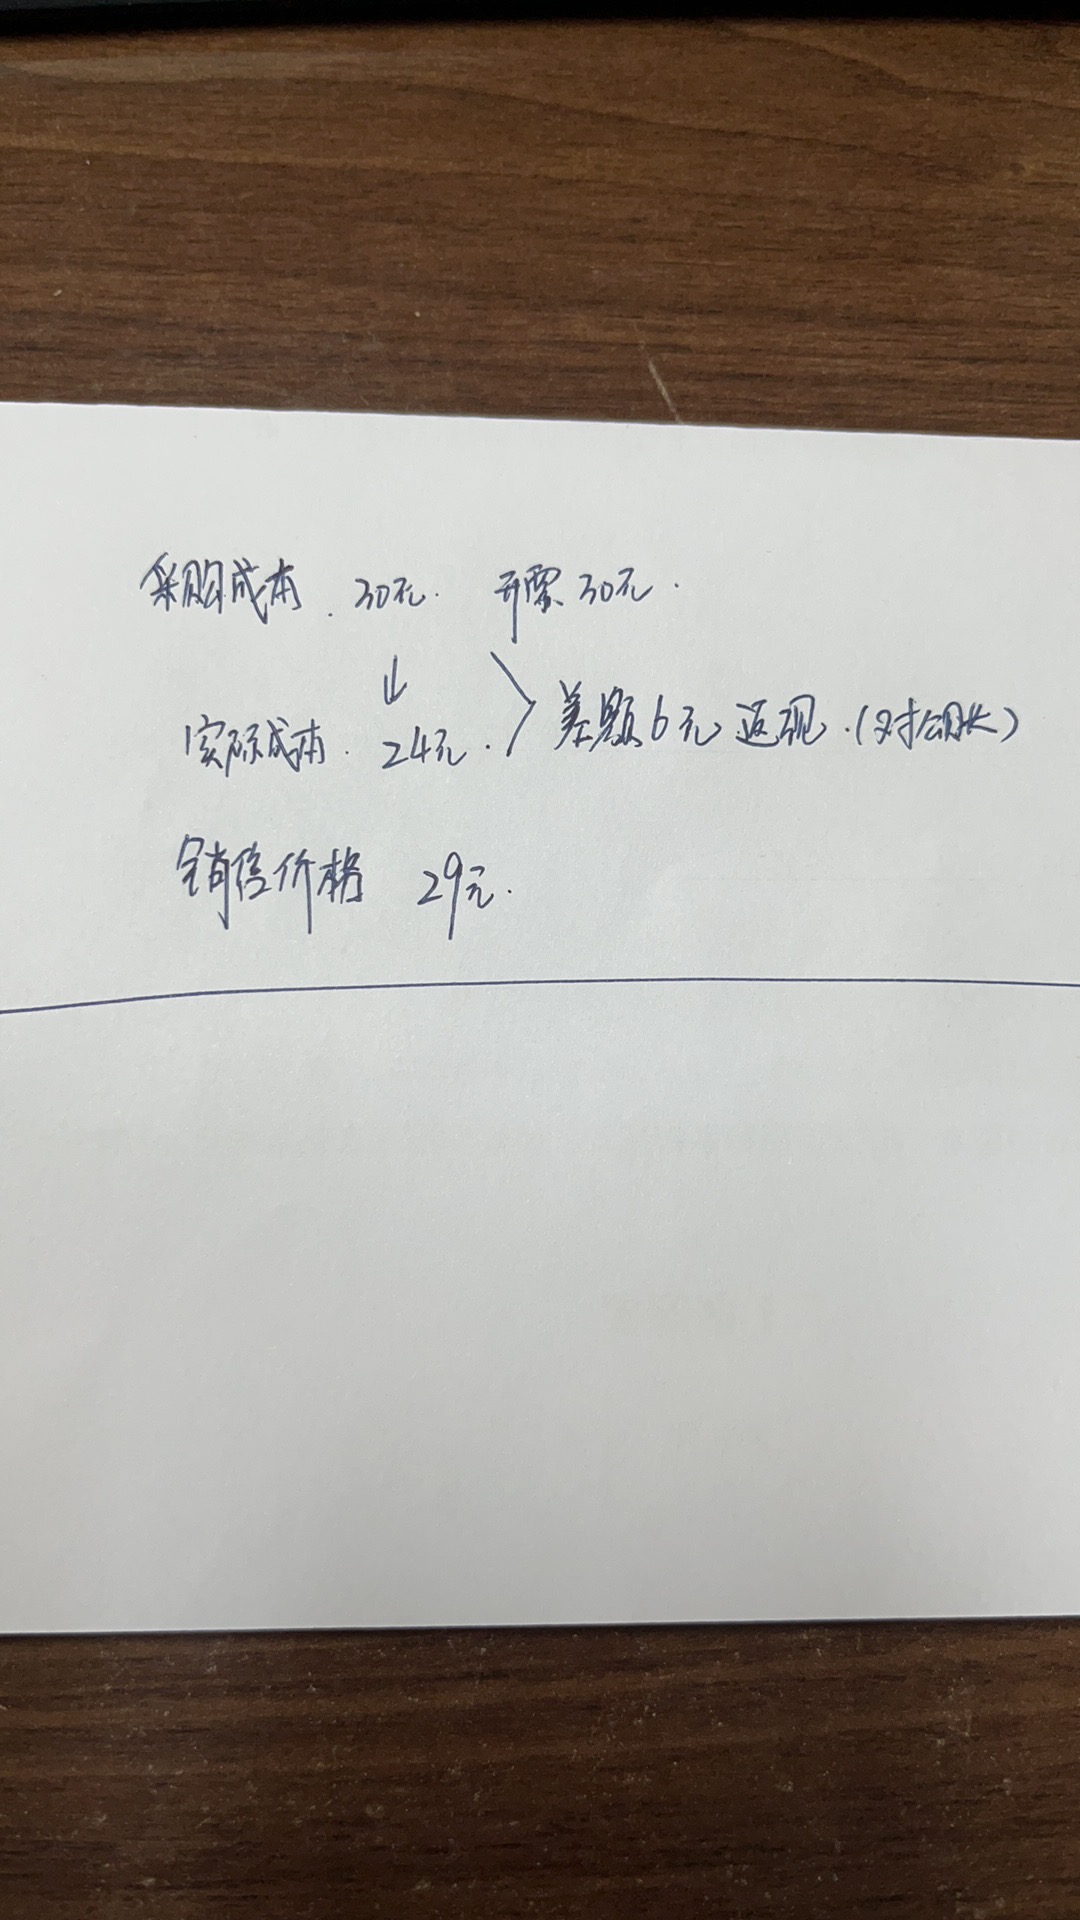 采购成本. 30元. 开票30元.
↓
实际成本. 24元. > 差额6元返现.(对公账)
销售价格 29元.